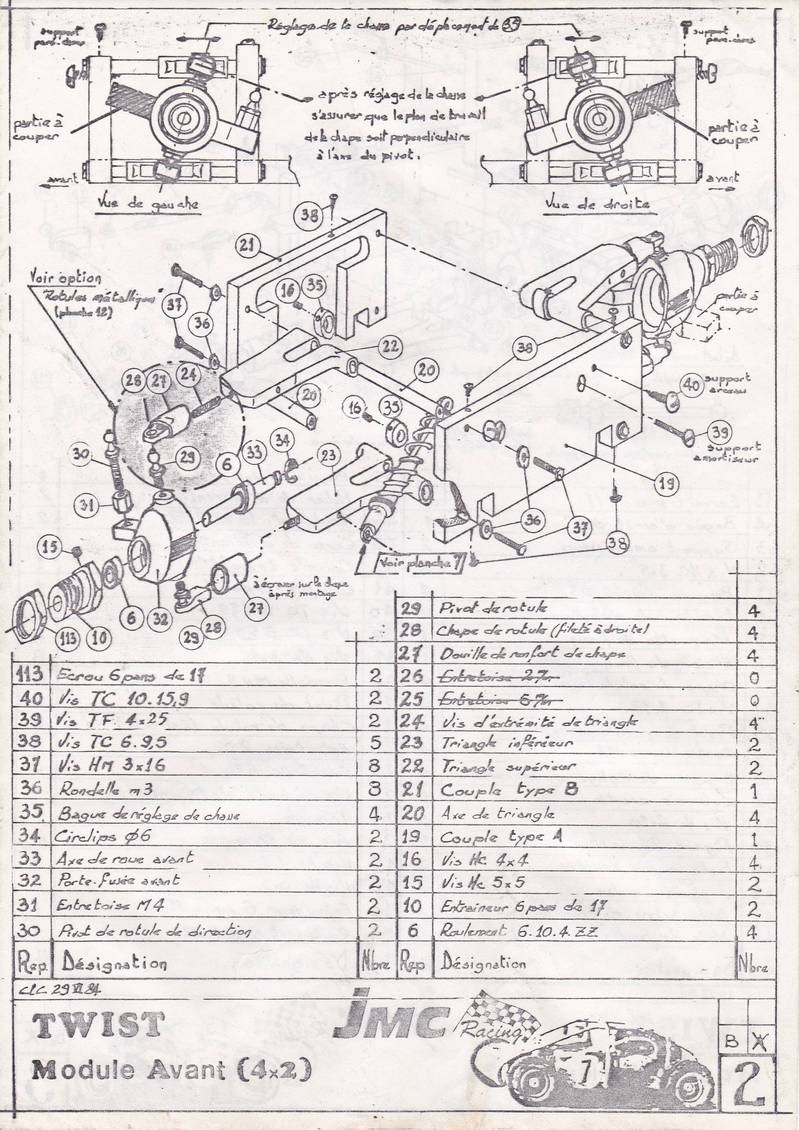 support
pare-chocs
Réglage de la chasse par déplacement de 35
support
pare-chocs
partie à
couper
après réglage de la chasse
s'assurer que le plan de travail
de la chape soit perpendiculaire
à l'axe du pivot.
partie à
couper
avant
Vue de gauche
Vue de droite
avant
38
21
Voir option
"Rotules métalliques"
(planche 12)
37
16
35
36
22
partie à
couper
38
28
27
24
20
20
16
35
40
support
arceau
39
support
amortisseur
30
29
6
33
34
23
19
31
15
36
37
38
Voir planche 7
à écrouer sur la chape
après montage
113
10
6
32
29
28
27
29 Pivot de rotule 4
28 Chape de rotule (fileté à droite) 4
27 Douille de renfort de chape 4
113 Ecrou 6 pans de 17 2
26 Entretoise 0
40 Vis TC 10.15,9 2
25 Entretoise 0
39 Vis TF 4x25 2
24 Vis d'extrémité de triangle 4
38 Vis TC 6.9,5 5
23 Triangle inférieur 2
37 Vis HM 3x16 8
22 Triangle supérieur 2
36 Rondelle m3 8
21 Couple type B 1
35 Bague de réglage de chasse 4
20 Axe de triangle 4
34 Circlips ϕ6 2
19 Couple type A 1
33 Axe de roue avant 2
16 Vis Hc 4x4 4
32 Porte-fusée avant 2
15 Vis Hc 5x5 2
31 Entretoise M4 2
10 Entraineur 6 pans de 17 2
30 Pivot de rotule de direction 2
6 Roulement 6.10.4.ZZ 4
Rep Désignation Nbre Rep Désignation Nbre
TWIST
Module Avant (4x2)
JMC
Racing
7
B
A
2